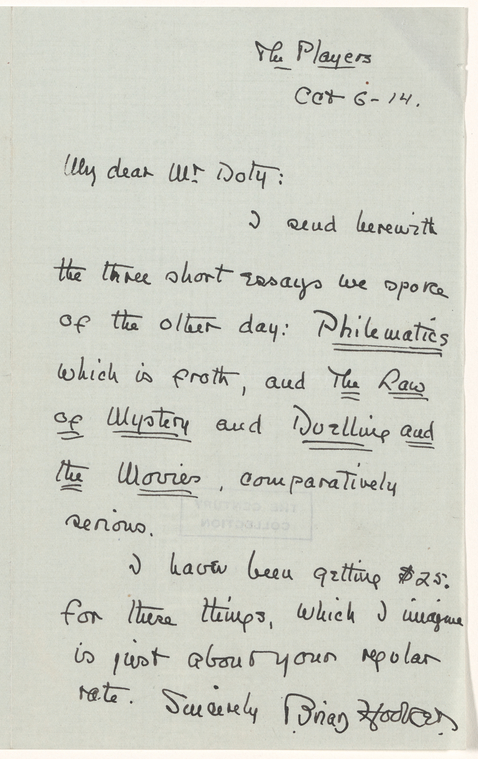 The Players
Oct 6-14.
My dear Mr Doty:
I send herewith
the three short essays we spoke
of the other day: Philematics
which is froth, and The Law
of Mystery and Duelling and
the Movies, comparatively
serious.
I have been getting $25.
for these things, which I imagine
is just about your regular
rate. Sincerely Brian Hooker.
THE CENTURY
COLLECTION